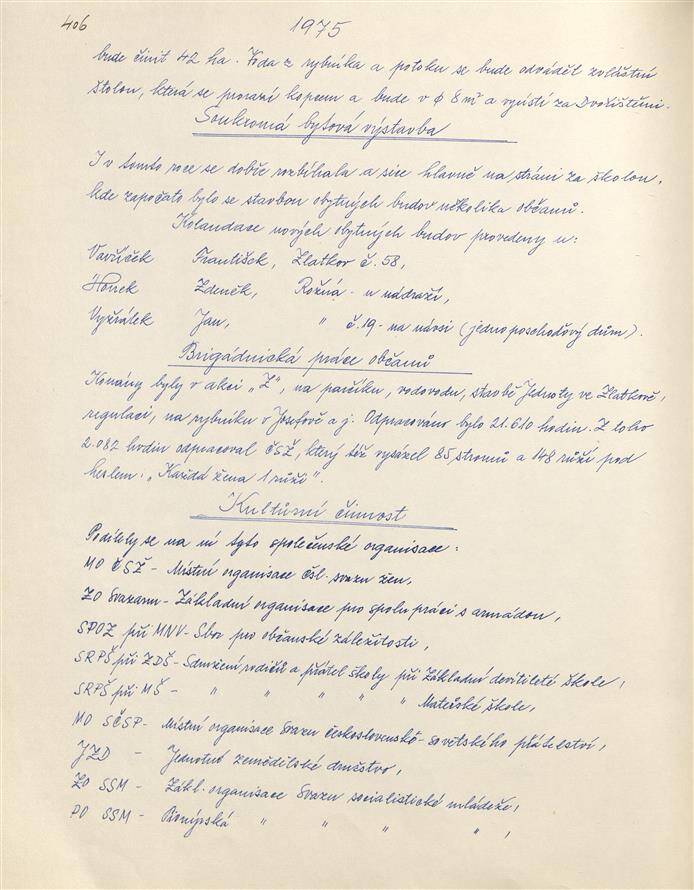 406
1975
bude činit 42 ha. Voda z rybníka a potoku se bude odvádět zvláštní
štolou, která se prorazí kopcem a bude v ϕ 8 m² a vyústí za Dvořištěm.
Soukromá bytová výstavba
I v tomto roce se dobře rozbíhala a sice hlavně na stráni za školou,
kde započato bylo se stavbou obytných budov několika občanů.
Kolaudace nových obytných budov provedeny u:
Vavříček František, Zlatkov č. 58,
Horek Zdeněk, Rožná - u nádraží,
Vyžrálek Jan, " č. 19 - na návsi (jednoposchoďový dům).
Brigádnická práce občanů
Konány byly v akci „Z", na parčíku, vodovodu, stavbě Jednoty ve Zlatkově,
regulaci, na rybníku v Josefově a j. Odpracováno bylo 21.610 hodin. Z toho
2.082 hodin odpracoval ČSŽ, který též vysázel 85 stromů a 148 růží pod
heslem: „Každá žena 1 růži".
Kultúrní činnost
Podílely se na ní tyto společenské organisace:
MO ČSŽ - Místní organisace čsl. svazu žen,
ZO Svazarmu - Základní organisace pro spolupráci s armádou,
SPOZ při MNV - Sbor pro občanské záležitosti,
SRPŠ při ZDŠ - Sdružení rodičů a přátel školy při Základní devítileté škole,
SRPŠ při MŠ - " " " " " Mateřské škole,
MO SČSP - Místní organisace Svazu československo-sovětského přátelství,
JZD - Jednotné zemědělské družstvo,
ZO SSM - Zákl. organisace Svazu socialistické mládeže,
PO SSM - Pionýrská " " " ",